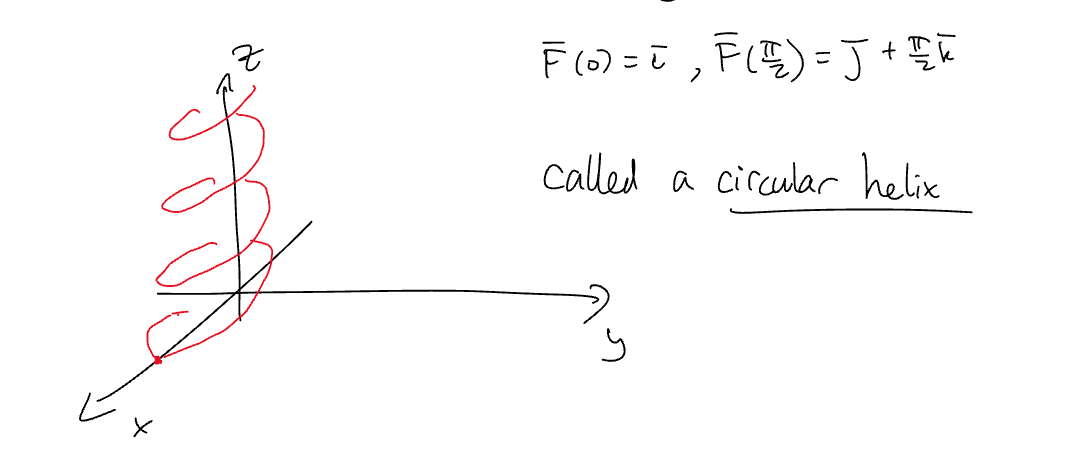 z
F̅(0) = i̅ , F̅(π/2) = j̅ + π/2 k̅
called a circular helix
y
x